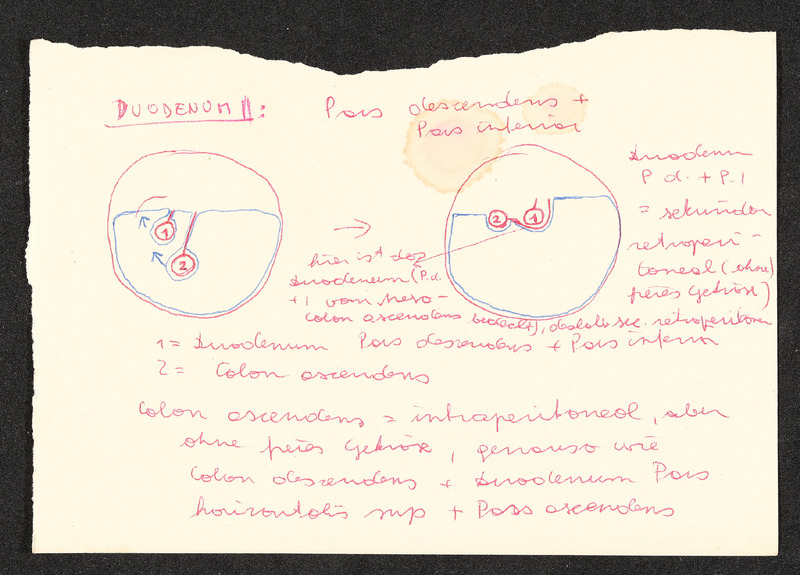 DUODENUM II: Pars descendens +
Pars inferior
Duodenum
P d. + P. I
= sekundär
retroperi-
toneal (ohne
freies Gekröse)
1
2
→
2
1
hier ist das
Duodenum (P.d.
+ I vom Meso-
colon ascendens bedeckt), deshalb sec. retroperitoneal
1 = Duodenum Pars descendens + Pars inferior
2 = Colon ascendens
Colon ascendens = intraperitoneal, aber
ohne freies Gekröse, genauso wie
Colon descendens + Duodenum Pars
horizontalis sup + Pars ascendens